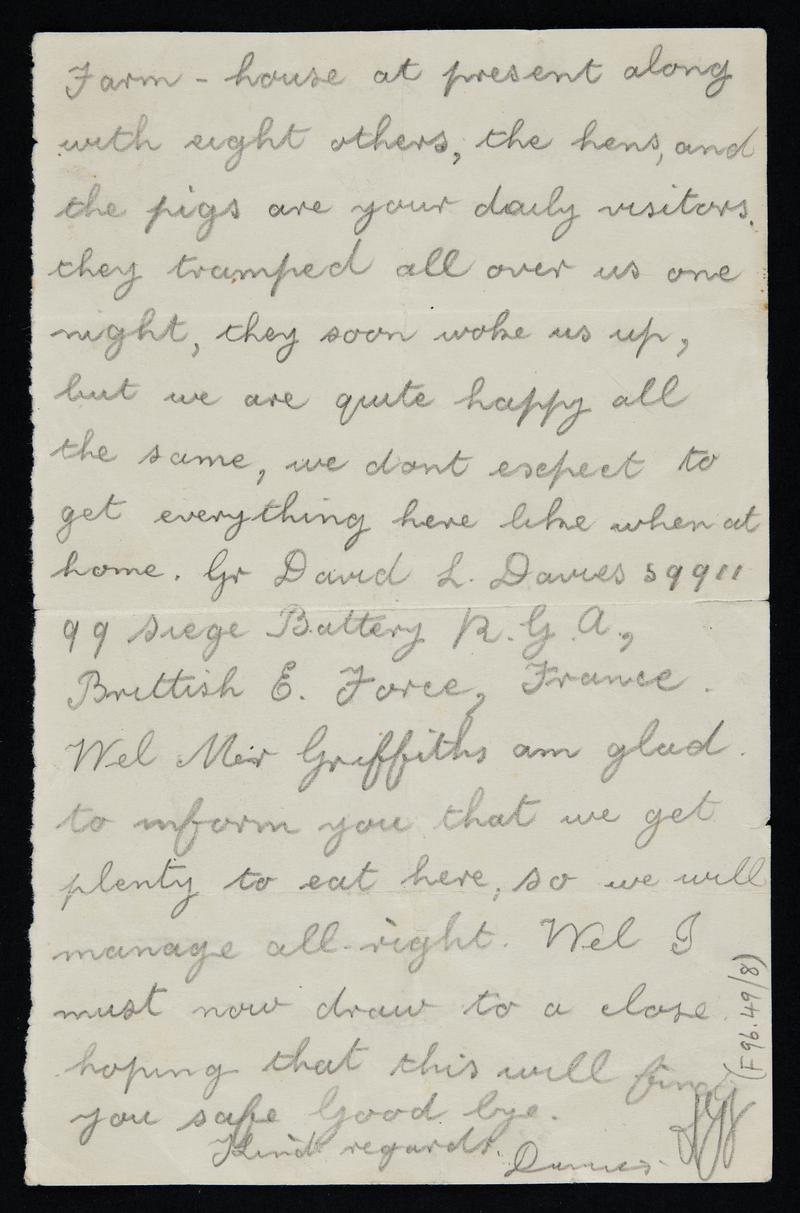 Farm - house at present along
with eight others, the hens, and
the pigs are your daily visitors.
they tramped all over us one
night, they soon woke us up,
but we are quite happy all
the same, we dont escpect to
get everything here like when at
home. Gr David L. Davies 59911
99 Siege Battery R.G.A.,
Brittish E. Force, France.
Wel Mr Griffiths am glad.
to inform you that we get
plenty to eat here, so we will
manage all right. Wel I
must now draw to a close
hoping that this will find
you safe Good bye.
Kind regards.
Davies.
(F96.49/8)